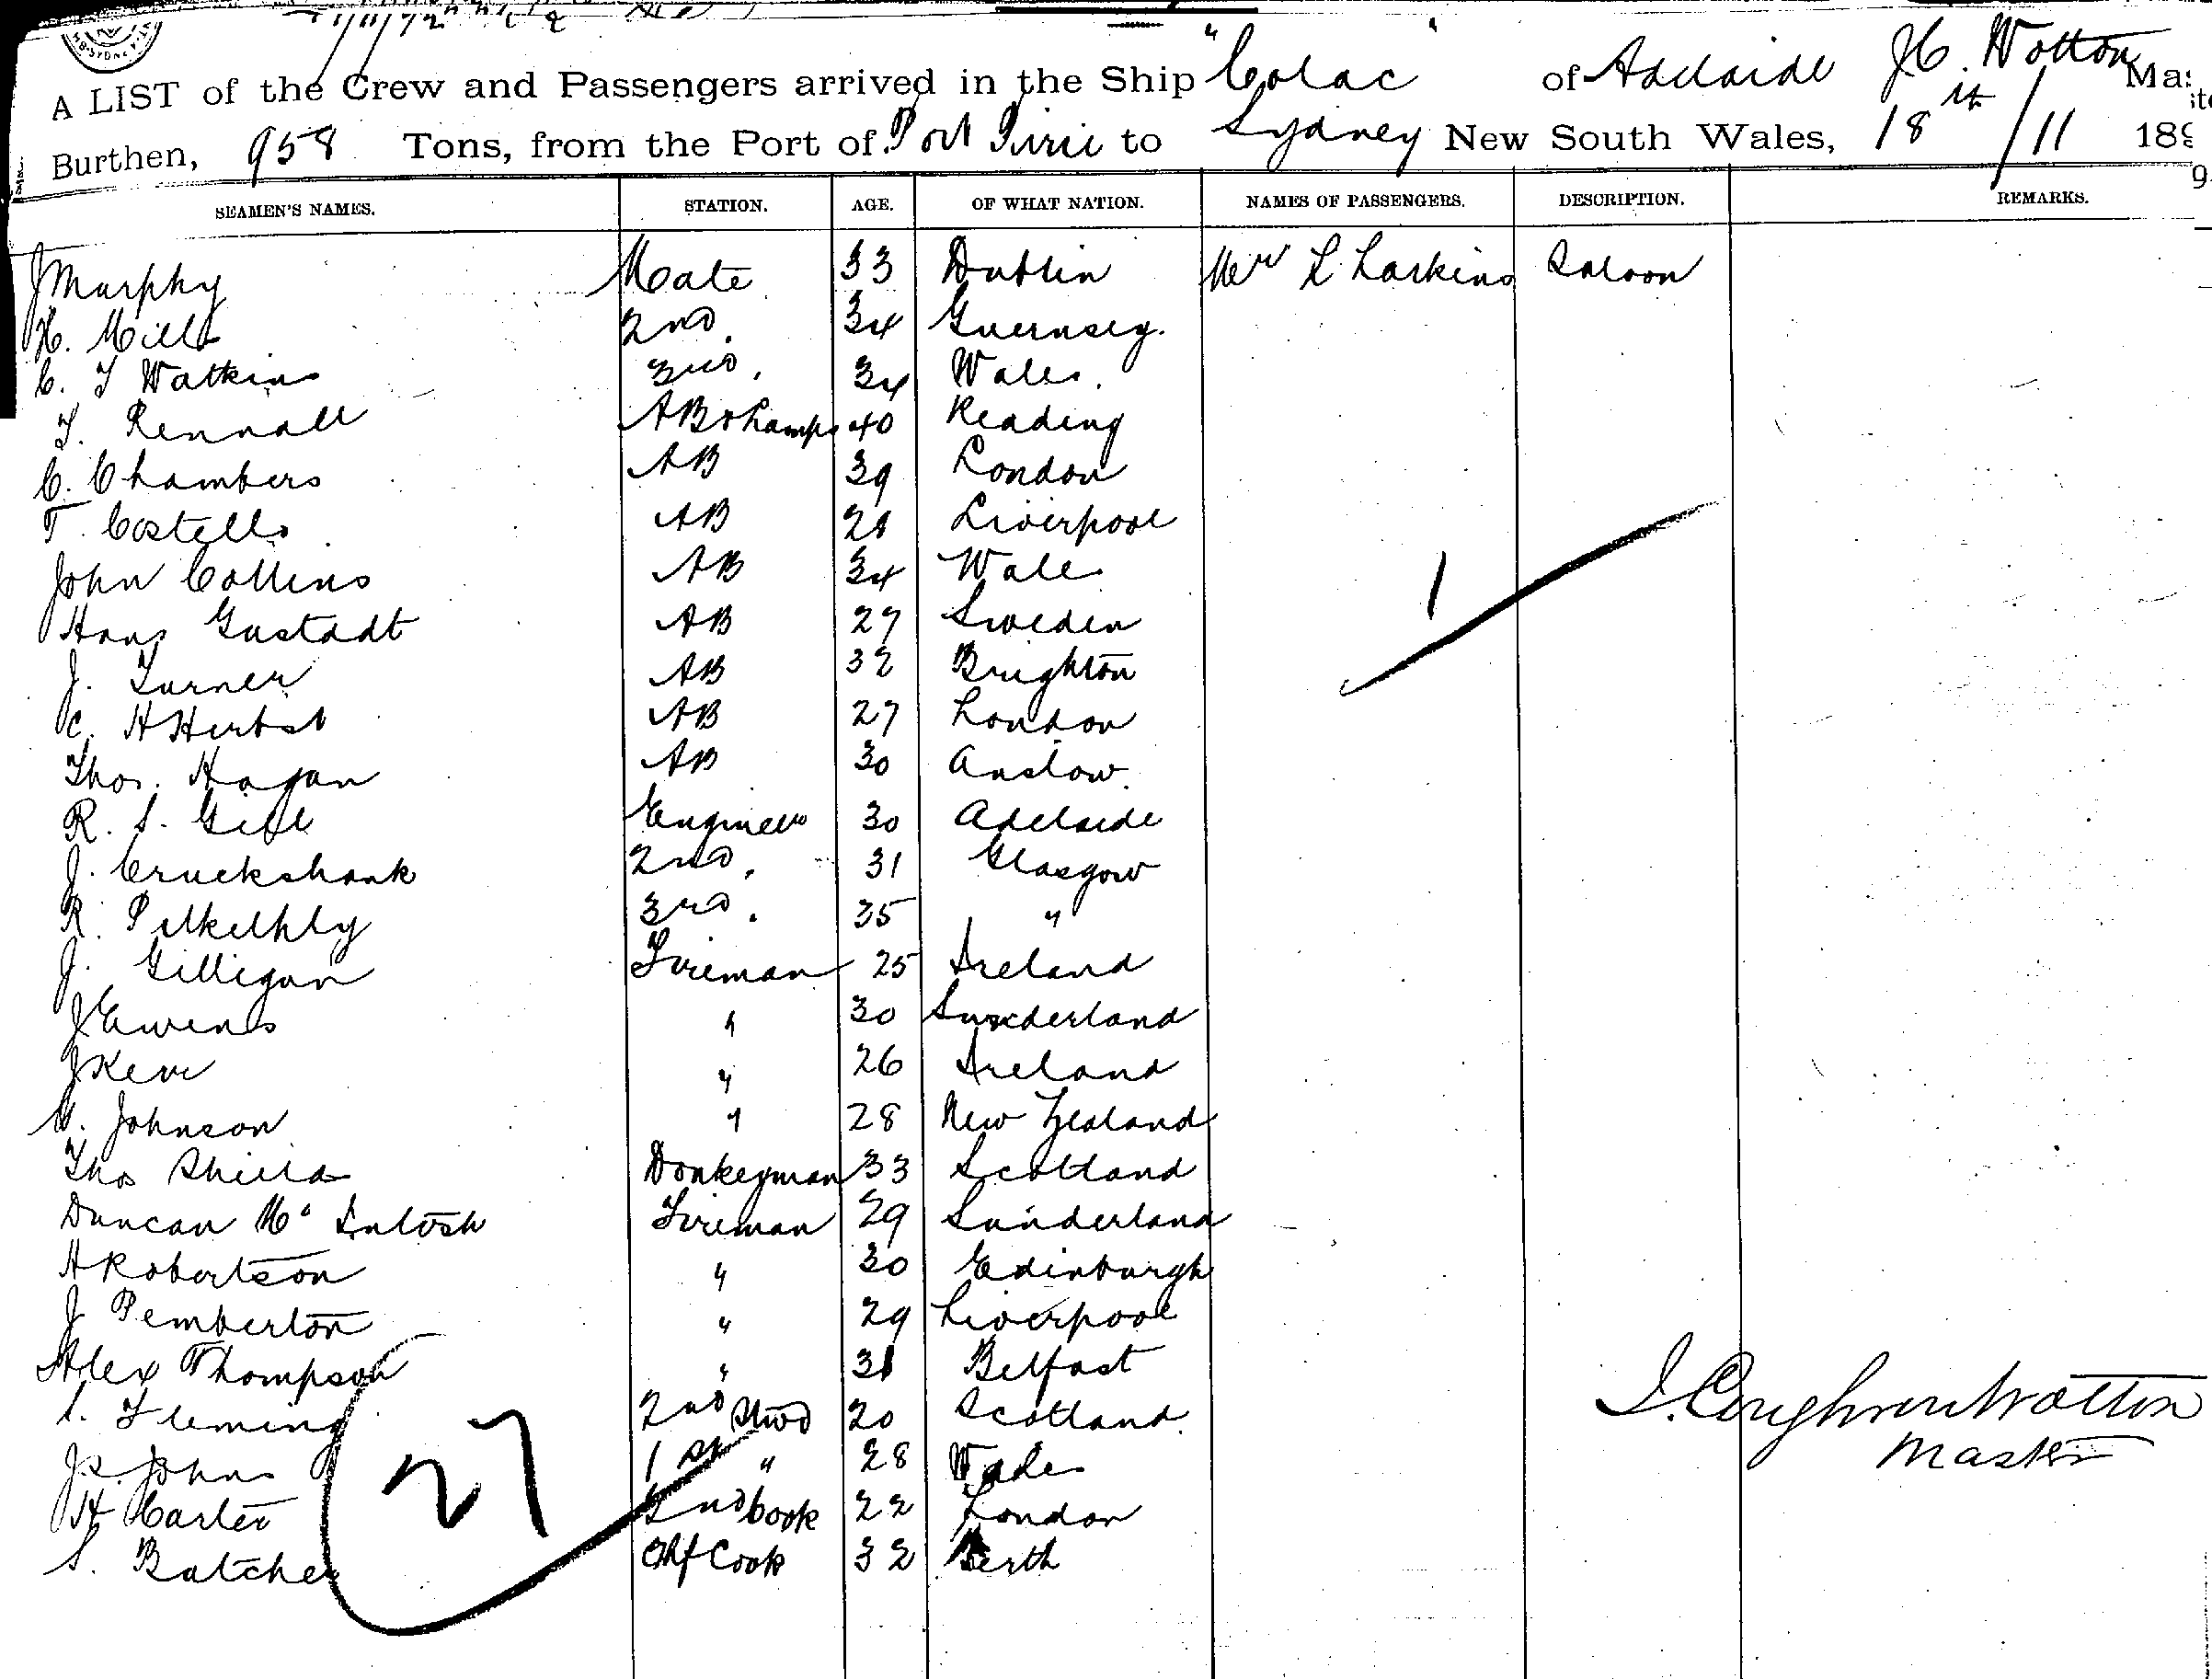 A LIST of the Crew and Passengers arrived in the Ship "Colac" of Adelaide J C. Wotton Mas
Burthen, 958 Tons, from the Port of Port Pirie to Sydney New South Wales, 18th /11 189
SEAMEN'S NAMES. STATION. AGE. OF WHAT NATION. NAMES OF PASSENGERS. DESCRIPTION. REMARKS.
J Murphy Mate 33 Dublin L Larkins Saloon
H. Mills 2nd. 34 Guernsey.
C. J Watkins 3rd. 34 Wales.
T. Rennall AB & Lamps 40 Reading
C. Chambers AB 39 London
T. Costello AB 28 Liverpool
John Collins AB 34 Wales
Hans Gustadt AB 27 Sweden
J. Turner AB 32 Brighton
1
C. H Herbst AB 27 London
Thos. Hagan AB 30 Onslow.
R. S. Gill Engineer 30 Adelaide
J. Cruckshank 2nd. 31 Glasgow
R. 3rd. 35 "
J. Gilligan Fireman 25 Ireland
J Ewens " 30 Sunderland
J Kerr " 26 Ireland
Johnson " 28 New Zealand
Thos Shields Donkeyman 33 Scotland
Duncan Mc Intosh Fireman 29 Sunderland
A Robertson " 30 Edinburgh
J Pemberton " 29 Liverpool
Alex Thompson " 31 Belfast
Fleming 2nd Stwd 20 Scotland.
J. Johns 1st " 28 Wales
H Carter 2nd Cook 22 London
S. Batcher Chf Cook 32 Perth
27
Wotton
Master